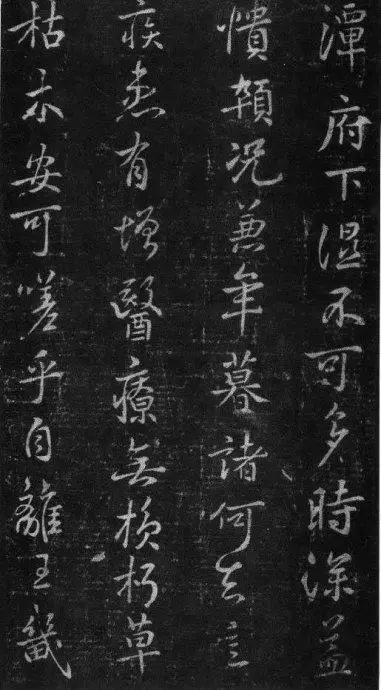 潭府下濕不可多時深益
憒頓況兼年暮諸何足言
疾患有增醫療無損朽草
枯木安可嗟乎自離王畿